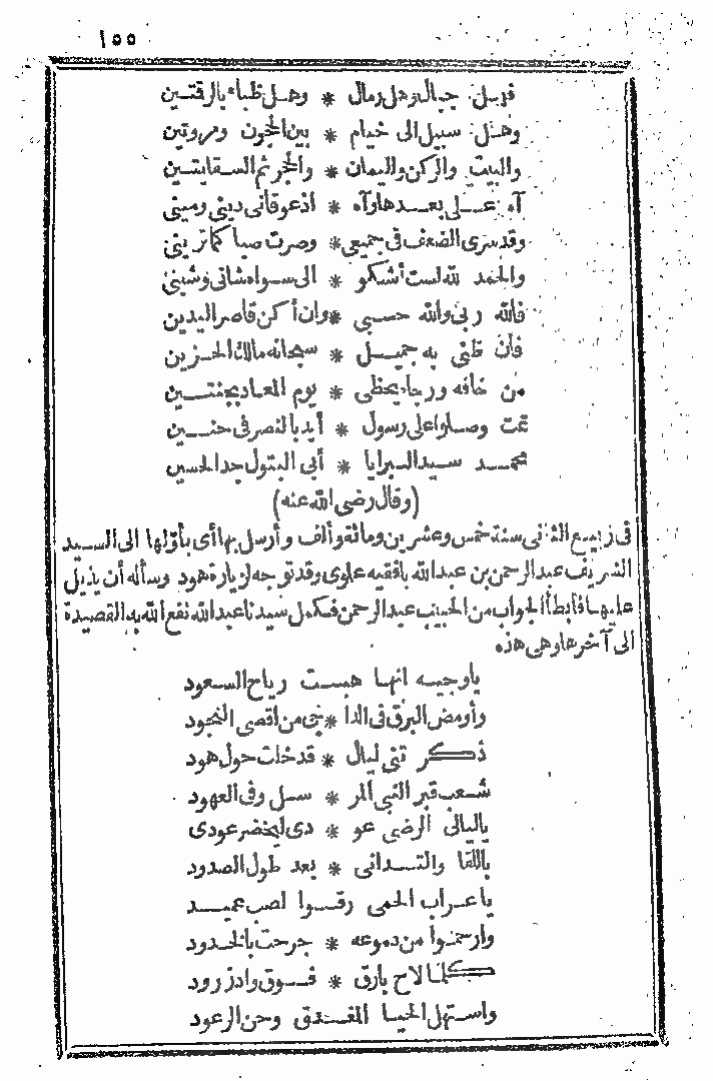 ١٥٥
فهل جبال وهل رمال * وهل ظباء بالرقتين
وهل سبيل الى خيام * بين الحجون ومروتين
والبيت والركن واليمان * والحجر ثم السقايتين
آه على بعدها وآه * اذ عوقانى دينى ومينى
وقد سرى الضعف فى جميعى * وصرت صبا كما ترينى
والحمد لله لست أشكو * الى سواه شانى وشينى
فالله ربى والله حسبى * وان أكن قاصر اليدين
فان ظنى به جميل * سبحانه مالك الحزين
من خافه ورجاه يحظى * يوم المعاد بجنتين
تمت وصلوا على رسول * أيد بالنصر فى حنين
محمد سيد البرايا * أبى البتول جد الحسين
(وقال رضى الله عنه)
فى ربيع الثانى سنة خمس وعشرين ومائة وألف وأرسل بها أى بأوّلها الى السيد
الشريف عبد الرحمن بن عبد الله بافقيه علوى وقد توجه لزيارة هود وسأله أن يذيل
عليها فأبطأ الجواب من الحبيب عبد الرحمن فكمل سيدنا عبد الله نفع الله به القصيدة
الى آخرها وهى هذه
ياوجيه انها هبت رياح السعود
وأومض البرق فى الدا * جى من اقصى النجود
ذكر تنى ليال * قد خلت حول هود
شعب قبر النبى المر * سل وفى العهود
ياليالى الرضى عو * دى ليخضر عودى
باللقا والتدانى * بعد طول الصدود
ياعراب الحمى رقوا لصب عميد
وارحموا من دموعه * جرحت بالخدود
كلما لاح بارق * فوق وادزرود
واستهل الحيا المغدق وحن الرعود